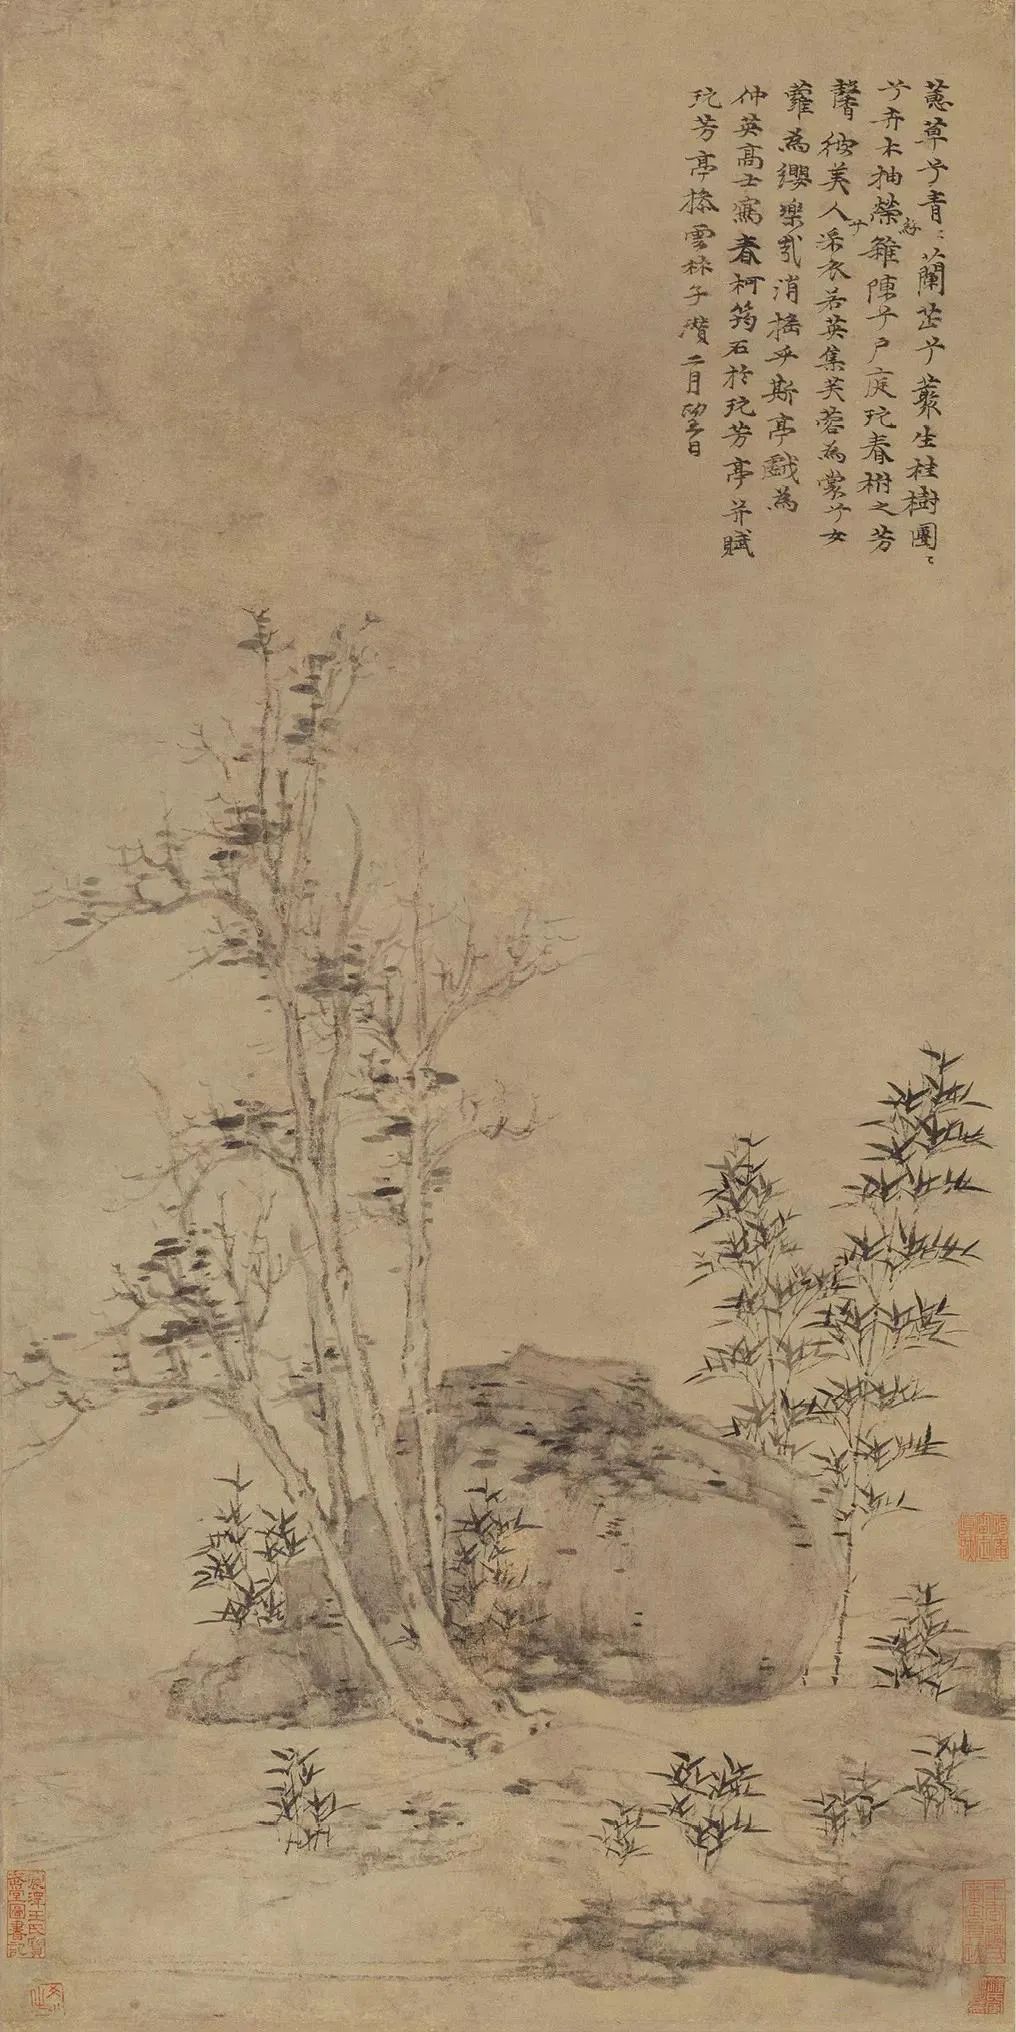 蕙草兮青〻蘭茝兮藂生桂樹團〻
兮卉木抽榮雜陳乎戶庭玩春柎之芳
馨彼美人兮采衣若英集芙蓉為裳兮女
蘿為纓樂哉消搖乎斯亭戲為
仲英高士寫春柯筠石於玩芳亭并賦
玩芳亭操雲林子瓚二月望日